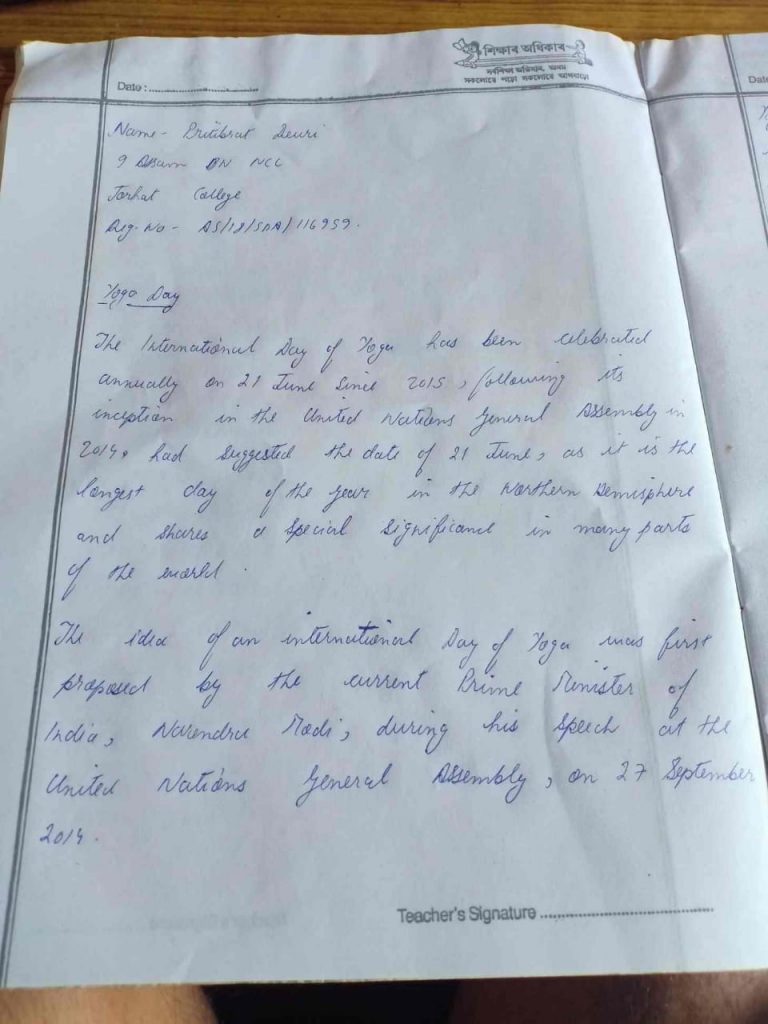 শিক্ষাৰ অধিকাৰ
সর্বশিক্ষা অভিযান, অসম
সকলোৱে পঢ়ো সকলোৱে আগবাঢ়ো
Date :
Name - Pritibrat Deuri
9 Assam BN NCC
Jorhat College
Reg. No - AS/18/SDA/116959.
Yoga Day
The International Day of Yoga has been celebrated
annually on 21 June Since 2015, following its
inception in the United Nations General Assembly in
2014. had suggested the date of 21 June, as it is the
longest day of the year in the Northern Hemisphere
and shares a special significance in many parts
of the world.
The idea of an international Day of Yoga was first
proposed by the current Prime Minister of
India, Narendra Modi, during his speech at the
United Nations General Assembly, on 27 September
2014.
Teacher's Signature